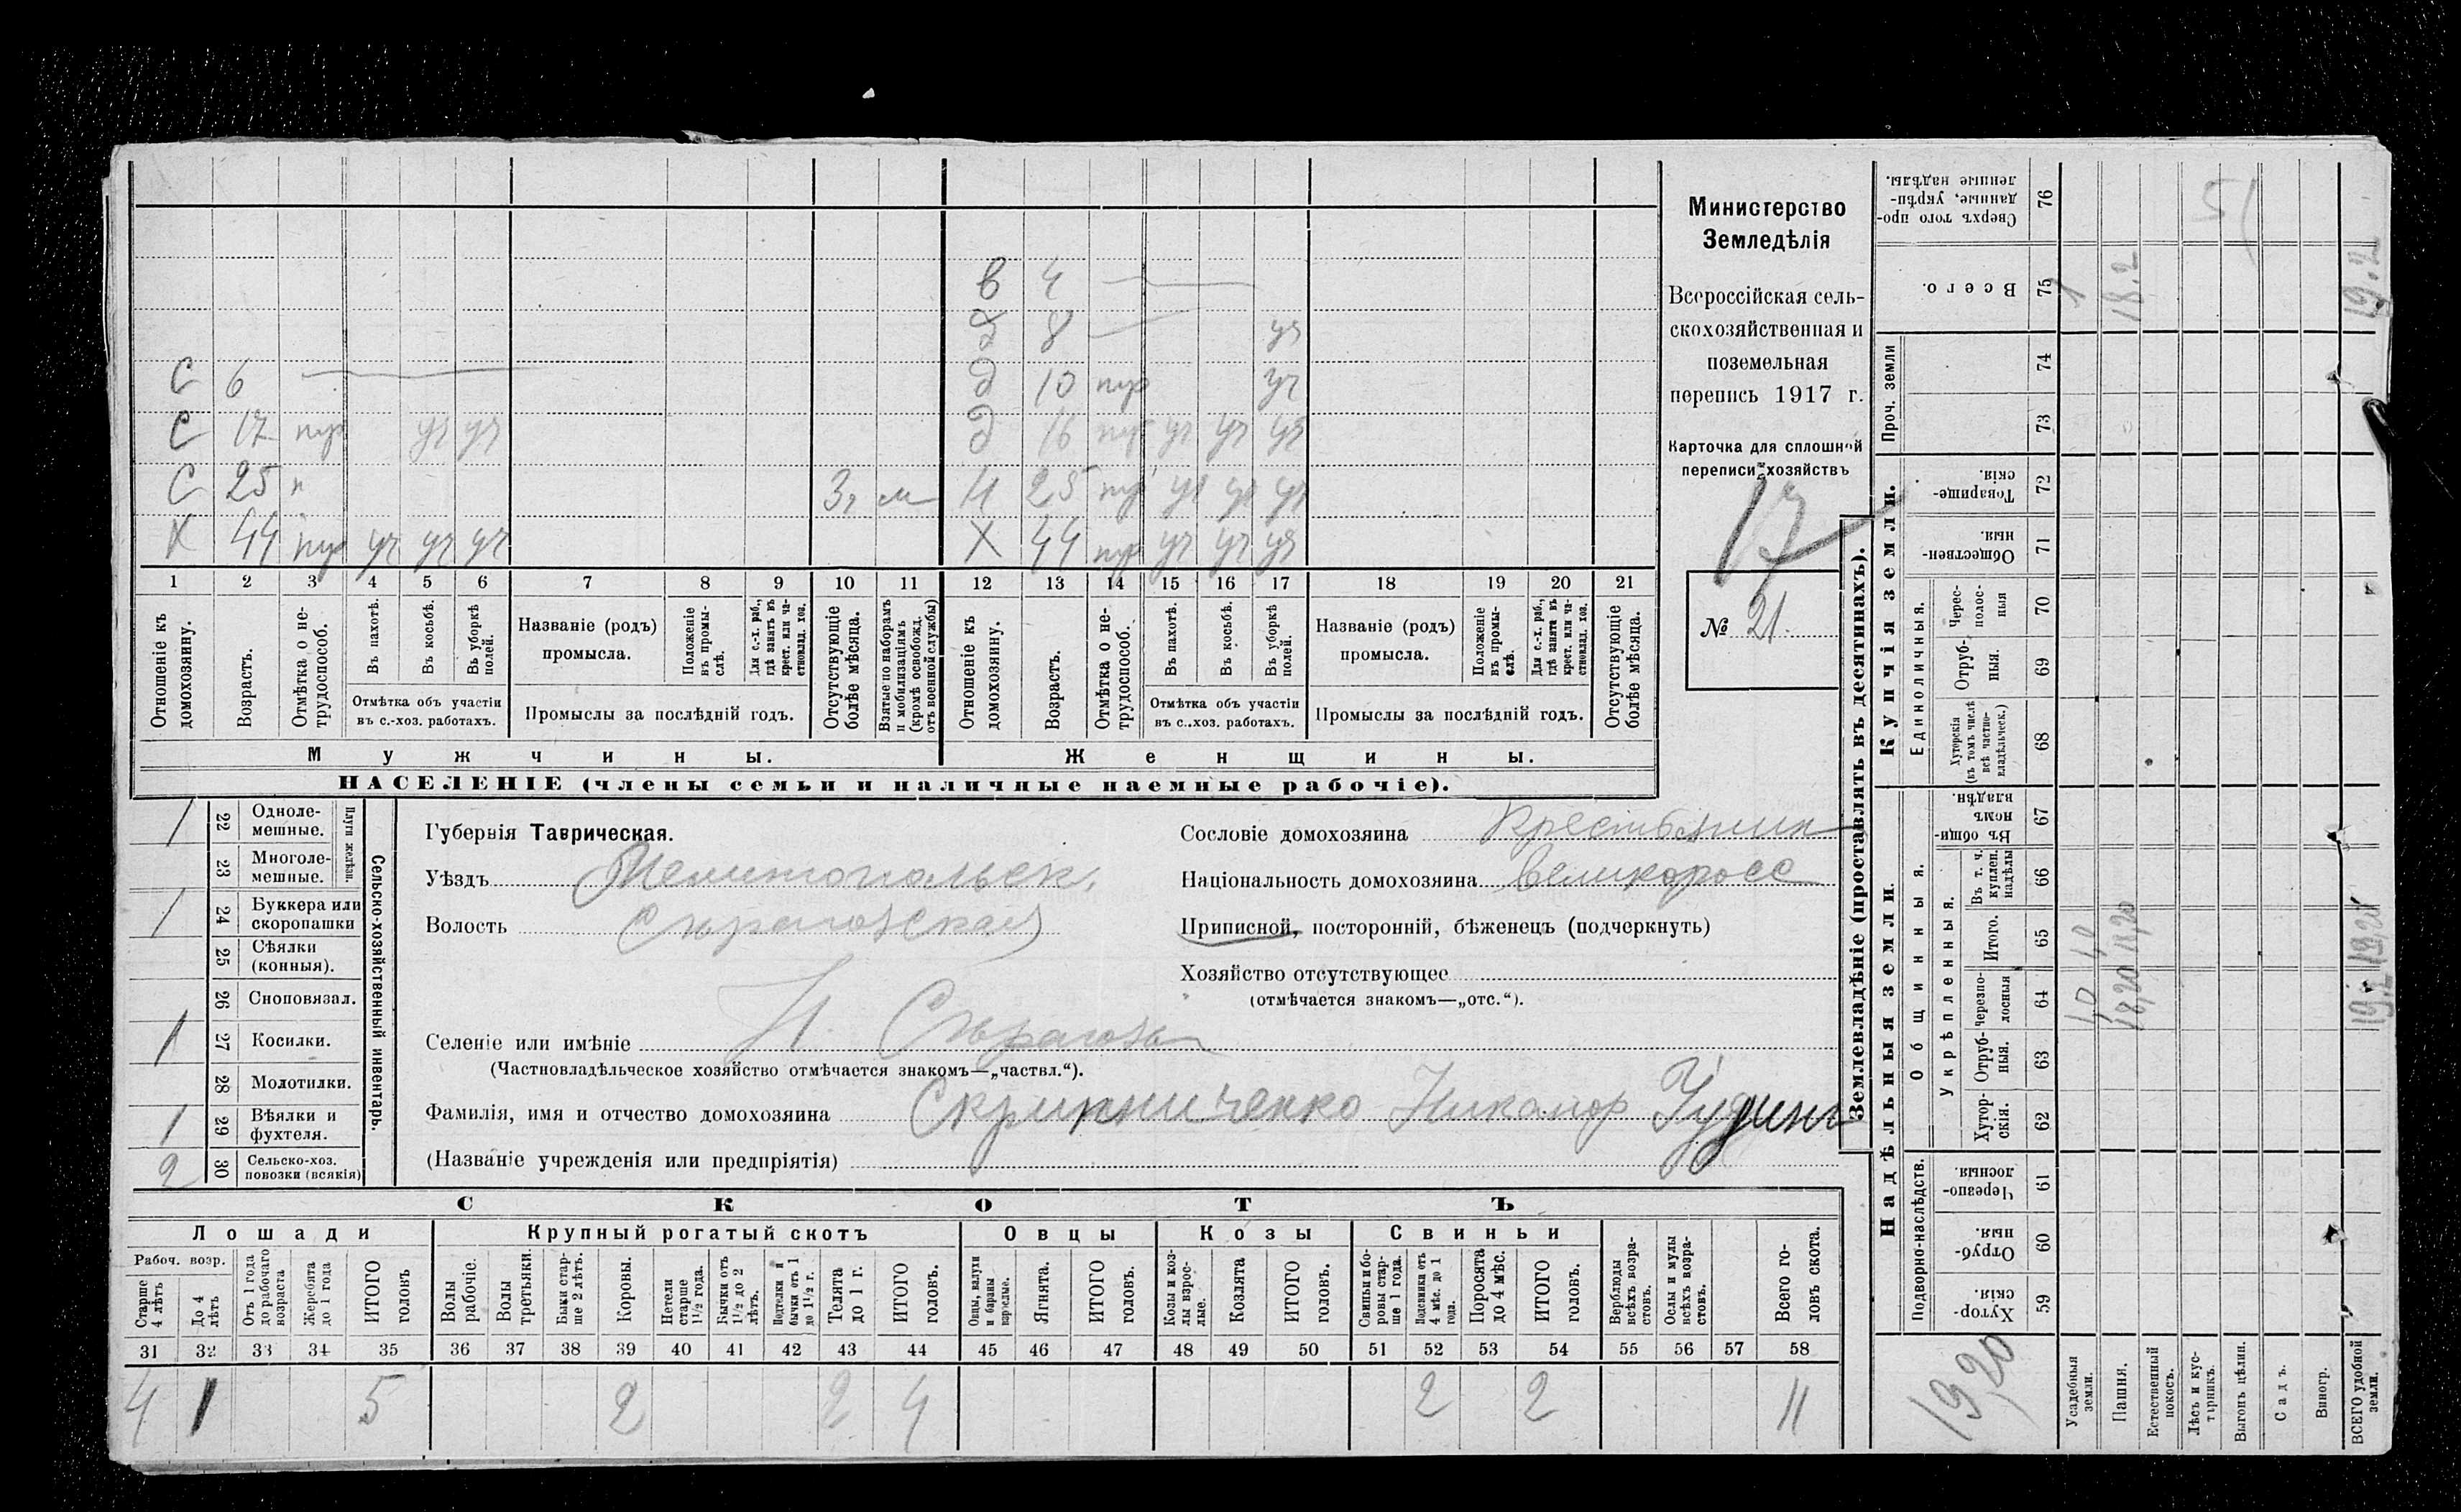 в 4
д 8 уч
С 6 д 10 пур уч
С 17 пур уч уч д 16 пур уч уч уч
С 25 п 3, м Н 25 пур уч уч уч
Х 44 пур уч уч уч Х 44 пур уч уч уч
1 2 3 4 5 6 7 8 9 10 11 12 13 14 15 16 17 18 19 20 21
Отношеніе къ домохозяину.
Возрастъ.
Отмѣтка о не-трудоспособ.
Въ пахотѣ.
Въ косьбѣ.
Въ уборкѣ полей.
Отмѣтка объ участіи
въ с.-хоз. работахъ.
Названіе (родъ)
промысла.
Положеніе въ промы-слѣ.
Для с.-х. раб., гдѣ занятъ въ крест. или ча-стновлад. хоз.
Промыслы за послѣдній годъ.
Отсутствующіе болѣе мѣсяца.
Взятые по наборамъ и мобилизаціямъ (кромѣ освобожд. отъ военной службы)
Отношеніе къ домохозяину.
Возрастъ.
Отмѣтка о не-трудоспособ.
Въ пахотѣ.
Въ косьбѣ.
Въ уборкѣ полей.
Отмѣтка объ участіи
въ с..хоз. работахъ.
Названіе (родъ)
промысла.
Положеніе въ промы-слѣ.
Для с.-х. раб., гдѣ занята въ крест. или ча-стновлад. хоз.
Промыслы за послѣдній годъ.
Отсутствующіе болѣе мѣсяца.
Мужчины.
Женщины.
НАСЕЛЕНІЕ (члены семьи и наличные наемные рабочіе).
Министерство
Земледѣлія
Всероссійская сель-
скохозяйственная и
поземельная
перепись 1917 г.
Карточка для сплошной
переписи хозяйствъ
17
№ 21.
1 22 Одноле-мешные.
23 Многоле-мешные.
Плуги желѣзн.
1 24 Буккера или скоропашки
25 Сѣялки (конныя).
26 Сноповязал.
1 27 Косилки.
28 Молотилки.
1 29 Вѣялки и фухтеля.
2 30 Сельско-хоз. повозки (всякія)
Сельско-хозяйственный инвентарь.
Губернія Таврическая.
Уѣздъ Мелитопольск.
Волость Сѣрогозская
Селеніе или имѣніе Н. Сѣрогозы
(Частновладѣльческое хозяйство отмѣчается знакомъ—„частвл.“).
Фамилія, имя и отчество домохозяина Скрипниченко Никанор
(Названіе учрежденія или предпріятія)
Сословіе домохозяина Крестьянин
Національность домохозяина великоросс
Приписной, посторонній, бѣженецъ (подчеркнуть)
Хозяйство отсутствующее
(отмѣчается знакомъ—„отс.“).
СКОТЪ
Лошади Крупный рогатый скотъ Овцы Козы Свиньи
Рабоч. возр.
Старше 4 лѣтъ
До 4 лѣтъ
Отъ 1 года до рабочаго возраста
Жеребята до 1 года
ИТОГО головъ
Волы рабочіе.
Волы третьяки.
Быки стар-ше 2 лѣтъ.
Коровы.
Нетели старше 1½ года.
Бычки отъ 1½ до 2 лѣтъ.
Подтелки и бычки отъ 1 до 1½ г.
Телята до 1 г.
ИТОГО головъ.
Овцы, валухи и бараны взрослые.
Ягнята.
ИТОГО головъ.
Козы и коз-лы взрос-лые.
Козлята
ИТОГО головъ.
Свиньи и бо-ровы стар-ше 1 года.
Подсвинки отъ 4 мѣс. до 1 года.
Поросята до 4 мѣс.
ИТОГО головъ.
Верблюды всѣхъ возра-стовъ.
Ослы и мулы всѣхъ возра-стовъ.
Всего го-ловъ скота.
31 32 33 34 35 36 37 38 39 40 41 42 43 44 45 46 47 48 49 50 51 52 53 54 55 56 57 58
4 1 5 2 2 4 2 2 11
Землевладѣніе (проставлять въ десятинахъ).
Надѣльныя земли.
Купчія земли.
Проч. земли
Подворно-наслѣдств.
Общинныя.
Укрѣпленныя.
Единоличныя.
Хутор-скія. 59
Отруб-ныя. 60
Черезпо-лосныя 61
Хутор-скія. 62
Отруб-ныя. 63
Черезпо-лосныя 64
Итого. 65
Въ т. ч. куплен. надѣлы 66
Въ общи-номъ владѣн. 67
Хуторскія (въ томъ числѣ всѣ частно-владѣльческ.) 68
Отруб-ныя. 69
Черес-полос-ныя 70
Обществен-ныя. 71
Товарище-скія. 72
73
74
Всего. 75
Сверхъ того про-данные, укрѣп-ленные надѣлы. 76
19,20
Усадебныя земли. 1,0 1,0 1
Пашня. 18,20 18,20 18.2
Естественный покосъ.
Лѣсъ и кус-тарникъ.
Выгонъ цѣлин.
Садъ.
Виногр.
ВСЕГО удобной земли. 19.2 19,20 19.2